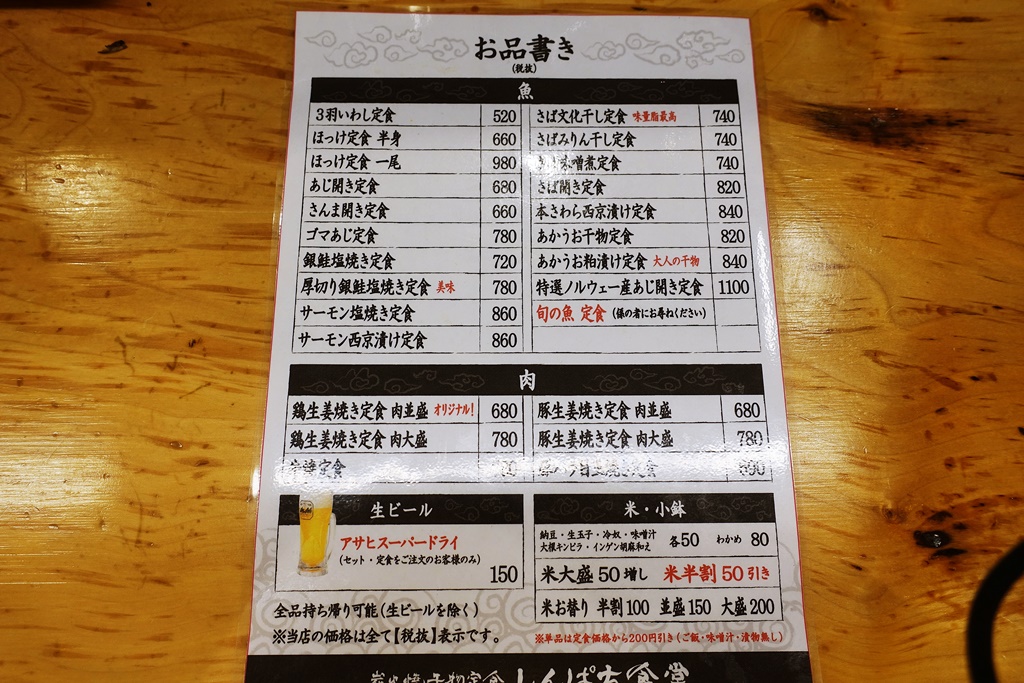 お品書き
(税抜)
魚
3羽いわし定食 520
ほっけ定食 半身 660
ほっけ定食 一尾 980
あじ開き定食 680
さんま開き定食 660
ゴマあじ定食 780
銀鮭塩焼き定食 720
厚切り銀鮭塩焼き定食 美味 780
サーモン塩焼き定食 860
サーモン西京漬け定食 860
さば文化干し定食 味量脂最高 740
さばみりん干し定食 740
味噌煮定食 740
さば開き定食 820
本さわら西京漬け定食 840
あかうお干物定食 820
あかうお粕漬け定食 大人の干物 840
特選ノルウェー産あじ開き定食 1100
旬の魚 定食 (係の者にお尋ねください)
肉
鶏生姜焼き定食 肉並盛 オリジナル! 680
鶏生姜焼き定食 肉大盛 780
定食
豚生姜焼き定食 肉並盛 680
豚生姜焼き定食 肉大盛 780
焼き定食
生ビール
アサヒスーパードライ
(セット・定食をご注文のお客様のみ)
150
米・小鉢
納豆・生玉子・冷奴・味噌汁
大根キンピラ・インゲン胡麻和え 各50 わかめ 80
米大盛 50増し 米半割 50引き
米お替り 半割100 並盛150 大盛200
全品持ち帰り可能(生ビールを除く)
※当店の価格は全て【税抜】表示です。
※単品は定食価格から200円引き(ご飯・味噌汁・漬物無し)
炭火焼干物定食 しんぱち食堂